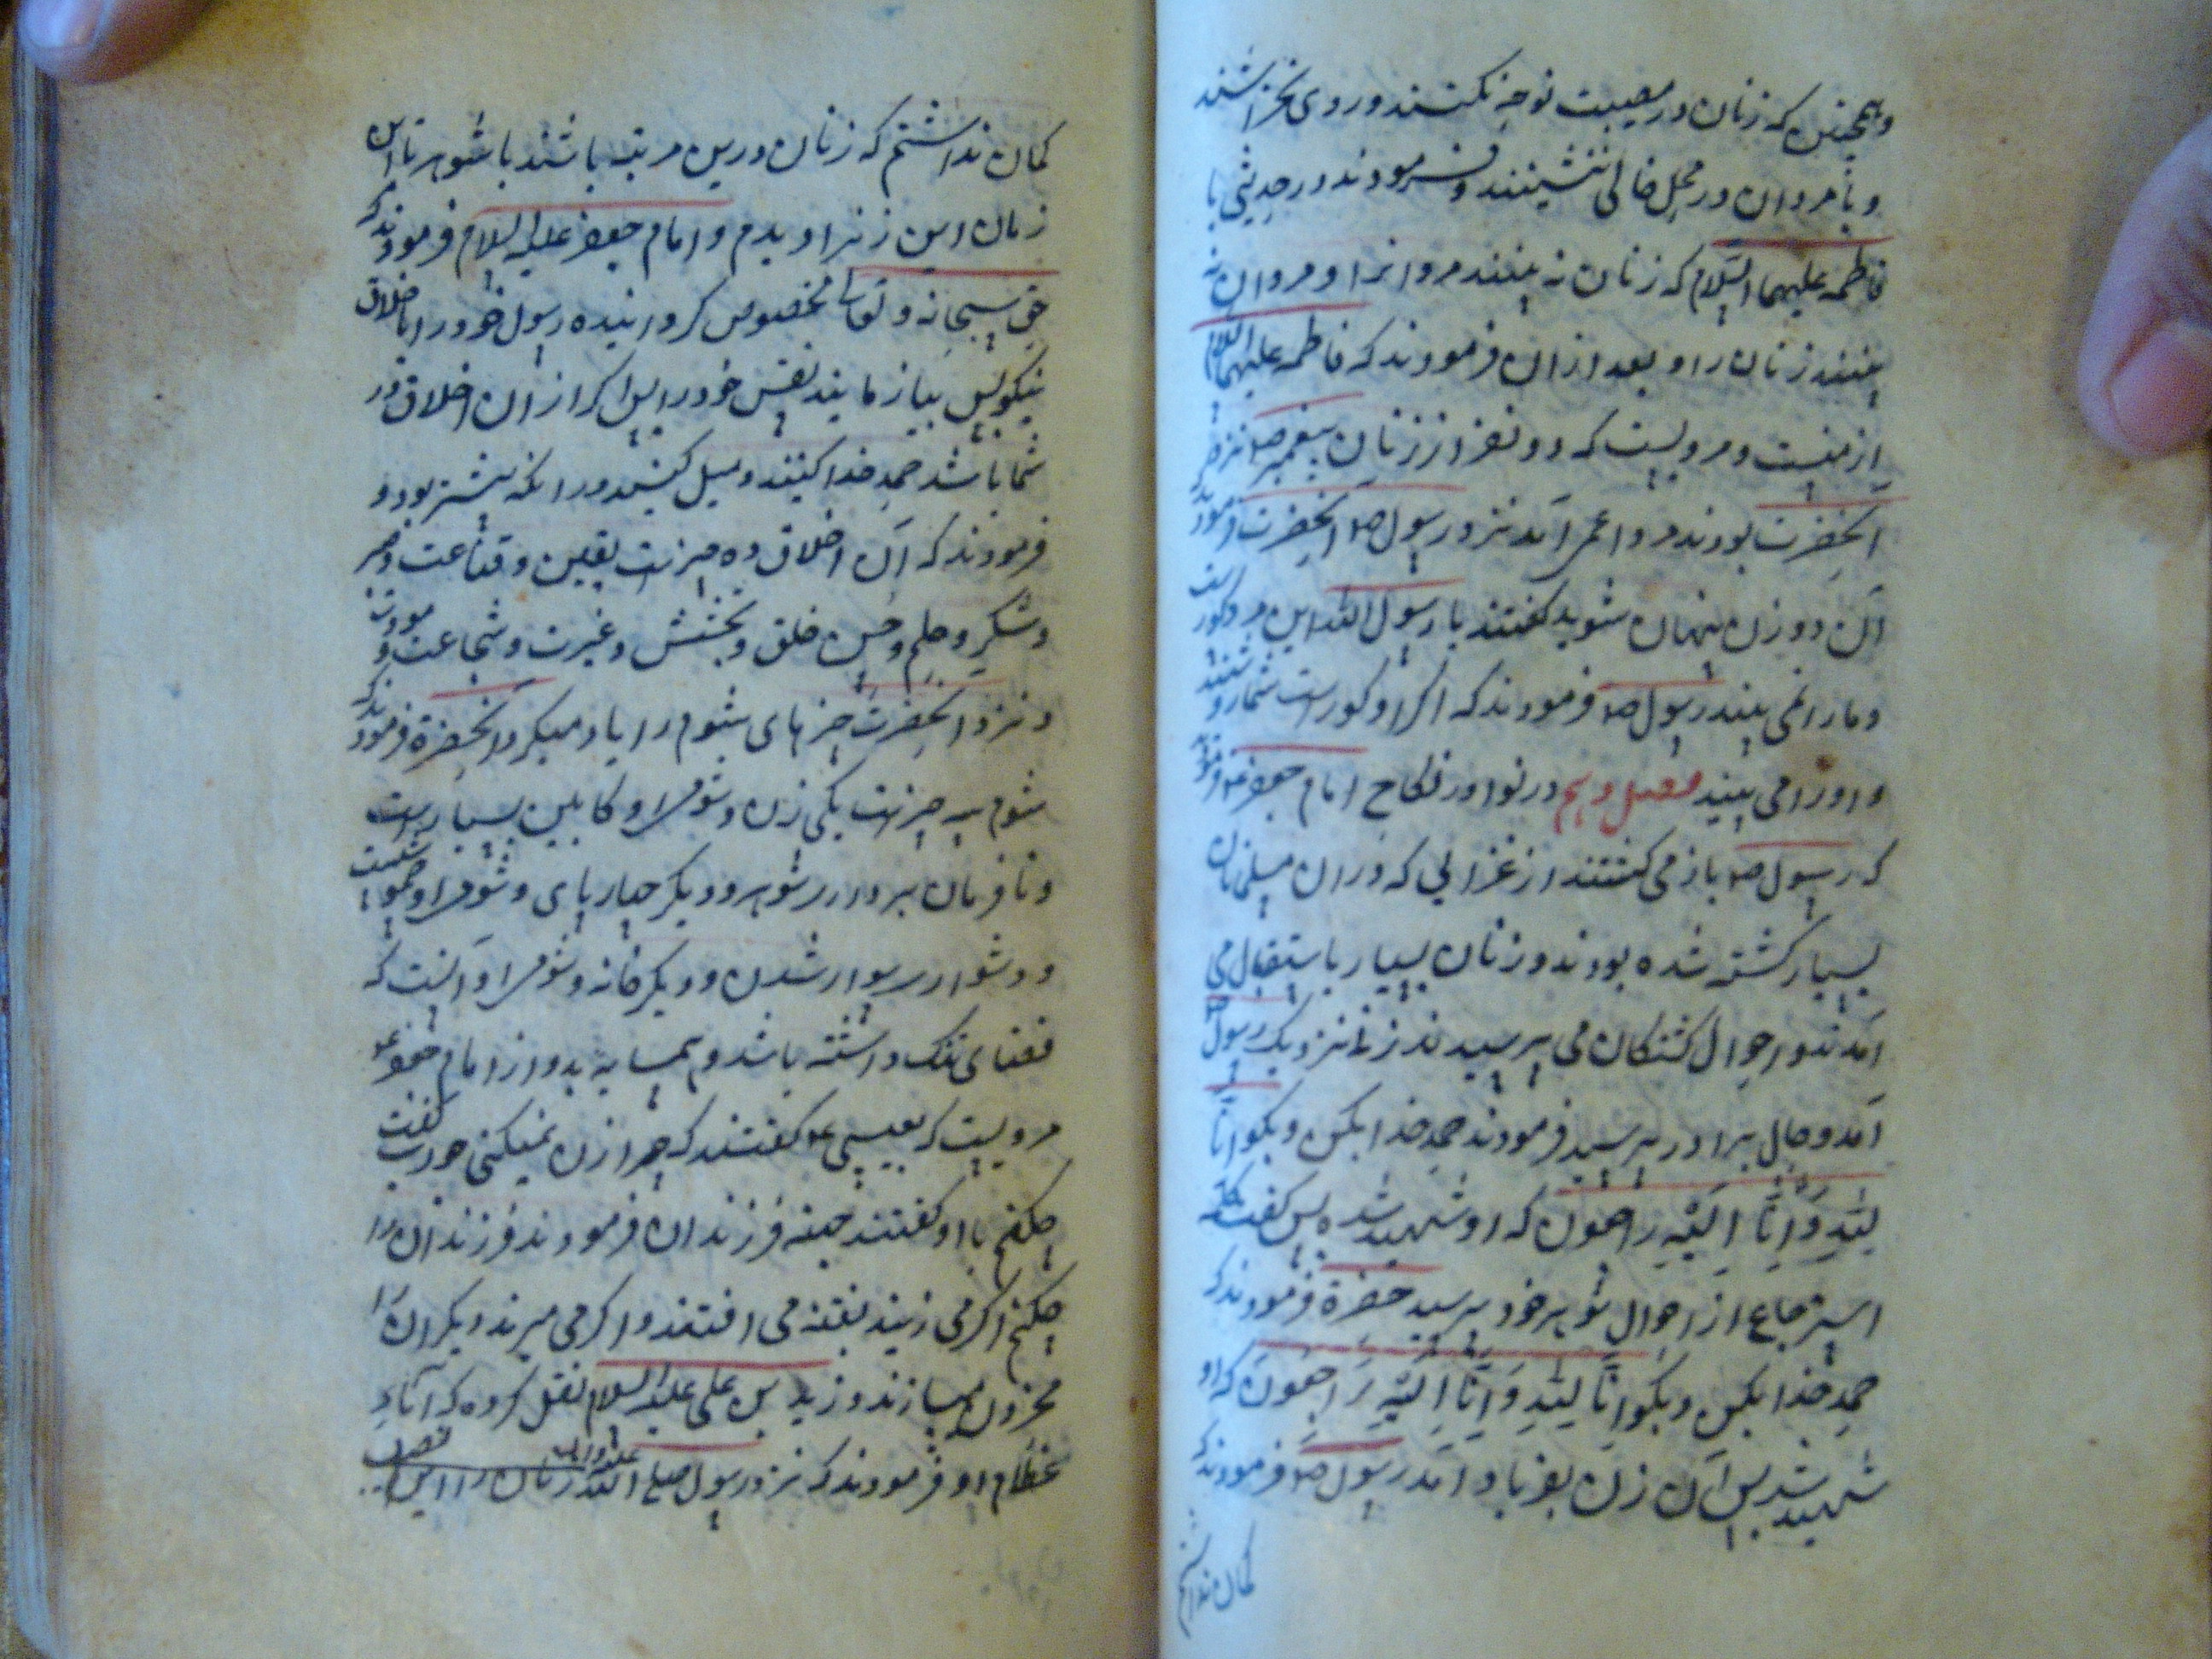 وهمچنین که زنان در مصیبت نوحه نکنند و روی نخراشند
و با مردان در محل خالی ننشینند و فرمودند در حدیثی با
فاطمه علیهما السلام که زنان نه بینند مردانرا و مردان نه
بینند زنان را و بعد از ان فرمودند که فاطمه علیهما السلام
از منست و مرویست که دو نفر از زنان پیغمبر ص نزد
آنحضرت بودند مرد اعمی آمد نزد رسول ص آنحضرت فرمودند
آن دو زن پنهان شوید گفتند یا رسول الله این مرد کور است
و ما را نمی بیند رسول ص فرمودند که اگر او کور است شما روشنید
و او را می بینید فصل دهم در نوادر نکاح امام جعفر ع فرمودند
که رسول ص باز می کشتند از غزایی که در ان مسلمانان
بسیار کشته شده بودند و زنان بسیار باستقبال می
آمدند و احوال کشتکان می پرسیدند زنی نزدیک رسول ص
آمد و حال برادر پرسید فرمودند حمد خدا بکن و بکو انا
لِلّٰهِ وَاِنَّا اِلَیْهِ رٰاجِعُون که او شهید شده پس گفت کلمه
استرجاع از احوال شوهر خود پرسید حضرة فرمودند که
حمد خدا بکن و بکو انَّا لِلّٰهِ وَاِنَّا اِلَیْهِ رَاجِعُونَ که او
شهید شد پس آن زن بفریاد آمد رسول ص فرمودند که
کمان نداشتم
کمان نداشتم که زنان درین مرتبه باشند با شوهر تا این
زمان این زنرا دیدم و امام جعفر علیه السلام فرمودند که
حق سبحانه و تعالی مخصوص کردانیده رسول خود را باخلاق
نیکو پس بیازمایید نفس خود را پس اگر از ان اخلاق در
شما باشد حمد خدا کنید و میل کنید در انکه بیشتر بود و
فرمودند که آن اخلاق ده چیزست یقین و قناعت و صبر
و شکر و حلم و حسن خلق و بخشش و غیرت و شجاعت و مروت
و نزد آنحضرت چیزهای شوم را یاد میکردند آنحضرة فرمودند که
شوم سه چیزست یکی زن و شومی او کابین بسیار است
و نافرمان بردار شوهر و دیگر چهارپای و شومی او
و دشوار سوار شدن و دیگر خانه و شومی او آنست که
فضای تنک داشته باشد و همسایه بد و از امام جعفر ع
مرویست که بعیسی ع گفتند که چرا زن نمیکنی در جواب گفت
چکنم با او گفتند جهة فرزندان فرمودند فرزندان را
چکنم اگر می زیند بفتنه می افتند و اگر می میرند دیگران را
محزون میسازند و زید بن علی علیه السلام نقل کرده که آباء
عظام او فرمودند که نزد رسول صلی الله علیه و اله زنان را این فصل